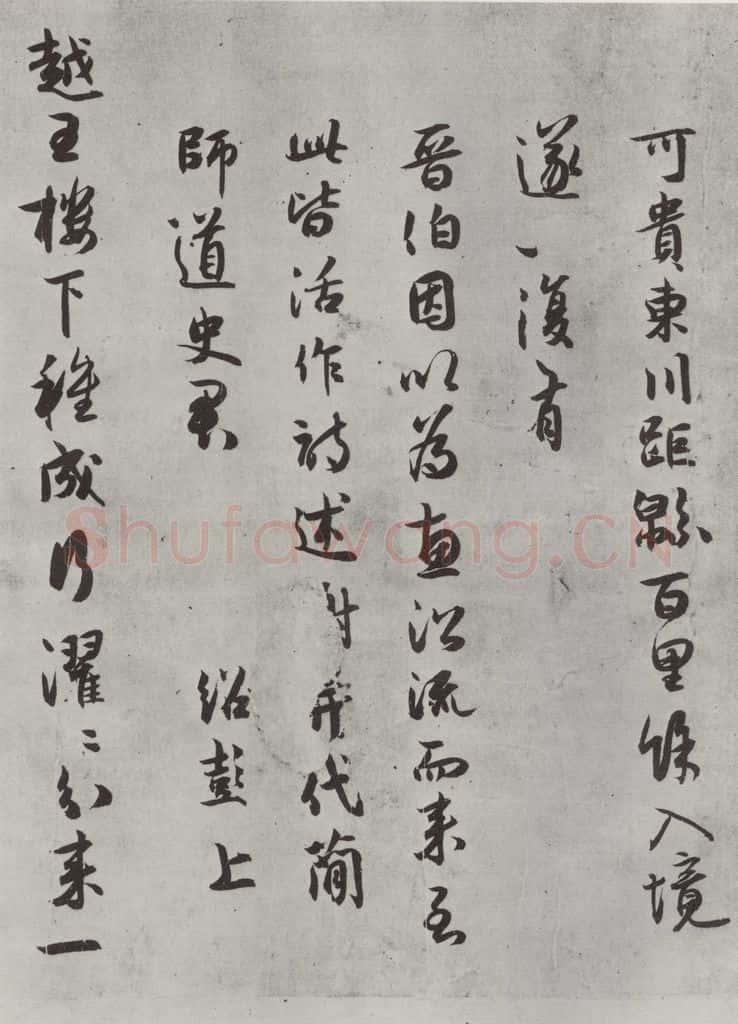 可貴東川距緜百里餘入境
遂復有
晉伯因以為惠沿流而來至
此皆活作詩述謝并代簡
師道史君 紹彭上
越王樓下種成行濯濯分來一
Shufawang.CN